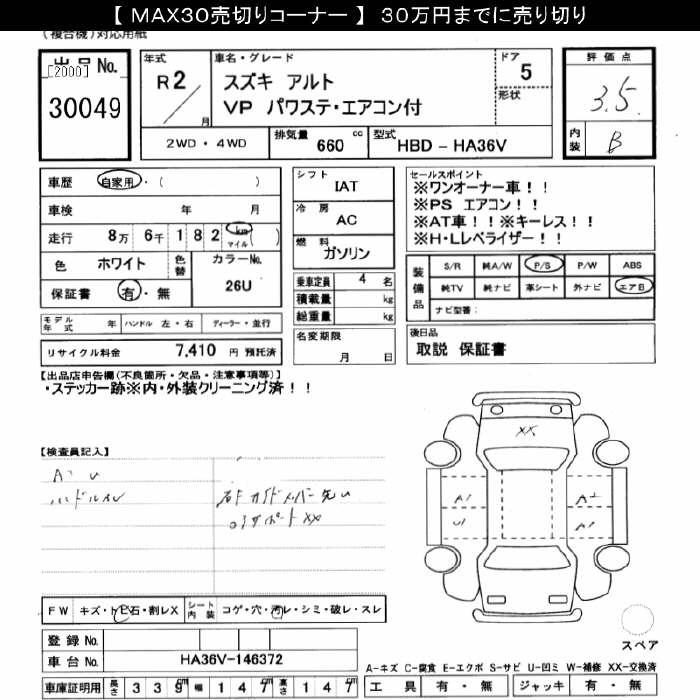 【 MAX30売切りコーナー 】 30万円までに売り切り
(複合機)対応用紙
出品No.
[2000]
30049
年式
R 2
月
車名・グレード
スズキ アルト
VP パワステ・エアコン付
ドア
5
形状
評価点
3.5
内装
B
2WD ・ 4WD
排気量 660 cc
型式 HBD - HA36V
車歴 自家用・( )
車検 年 月
走行 8万 6千 1 8 2 km マイル ( )
色 ホワイト 色替 カラーNo. 26U
保証書 有・無
シフト
IAT
冷房
AC
燃料
ガソリン
乗車定員 4 名
積載量 kg
総重量 kg
名変期限
月 日
セールスポイント
※ワンオーナー車!!
※PS エアコン!!
※AT車!!※キーレス!!
※H・Lレベライザー!!
装備品
S/R 純A/W P/S P/W ABS
純TV 純ナビ 革シート 外ナビ エアB
ナビ型番:
後日品
取説 保証書
モデル年式 年 ハンドル 左・右 ディーラー・並行
リサイクル料金 7,410 円 預託済
【出品店申告欄(不良箇所・欠品・注意事項等)】
・ステッカー跡※内・外装クリーニング済!!
【検査員記入】
A U
ハンドルスレ
XX
A1 A2
U1 A1
FW キズ・トビ石・割レX シート内装 コゲ・穴・汚レ・シミ・破レ・スレ
登録No.
車台No. HA36V-146372
車庫証明用 長さ 3 3 9 幅 1 4 7 高さ 1 4 7
スペア
A-キズ C-腐食 E-エクボ S-サビ U-凹ミ W-補修 XX-交換済
工具 有・無 ジャッキ 有・無